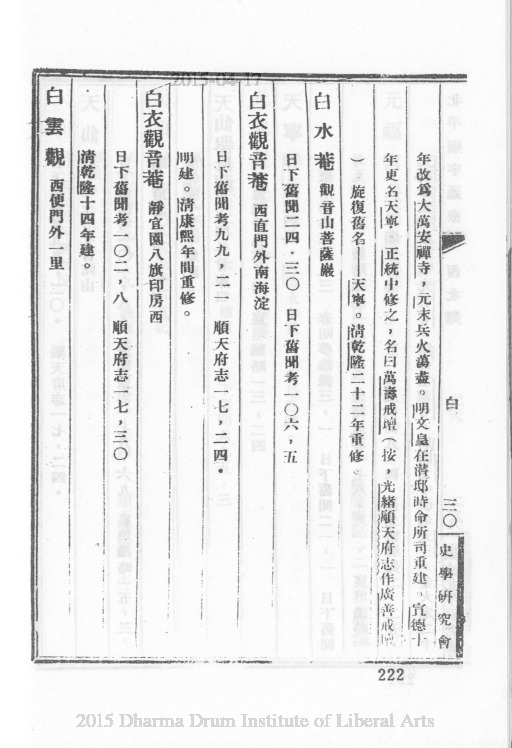 2015-04-17
白
三〇
史學研究會
年改爲大萬安禪寺，元末兵火蕩盡。明文皇在潛邸時命所司重建，宣德十
年更名天寧，正統中修之，名曰萬壽戒壇（按，光緒順天府志作廣善戒壇
），旋復舊名——天寧。清乾隆二十二年重修。
白水菴 觀音山菩薩巖
日下舊聞二四．三〇 日下舊聞考一〇六，五
白衣觀音菴 西直門外南海淀
日下舊聞考九九，二一 順天府志一七，二四。
明建。清康熙年間重修。
白衣觀音菴 靜宜園八旗印房西
日下舊聞考一〇二，八 順天府志一七，三〇
清乾隆十四年建。
白雲觀 西便門外一里
222
2015 Dharma Drum Institute of Liberal Arts